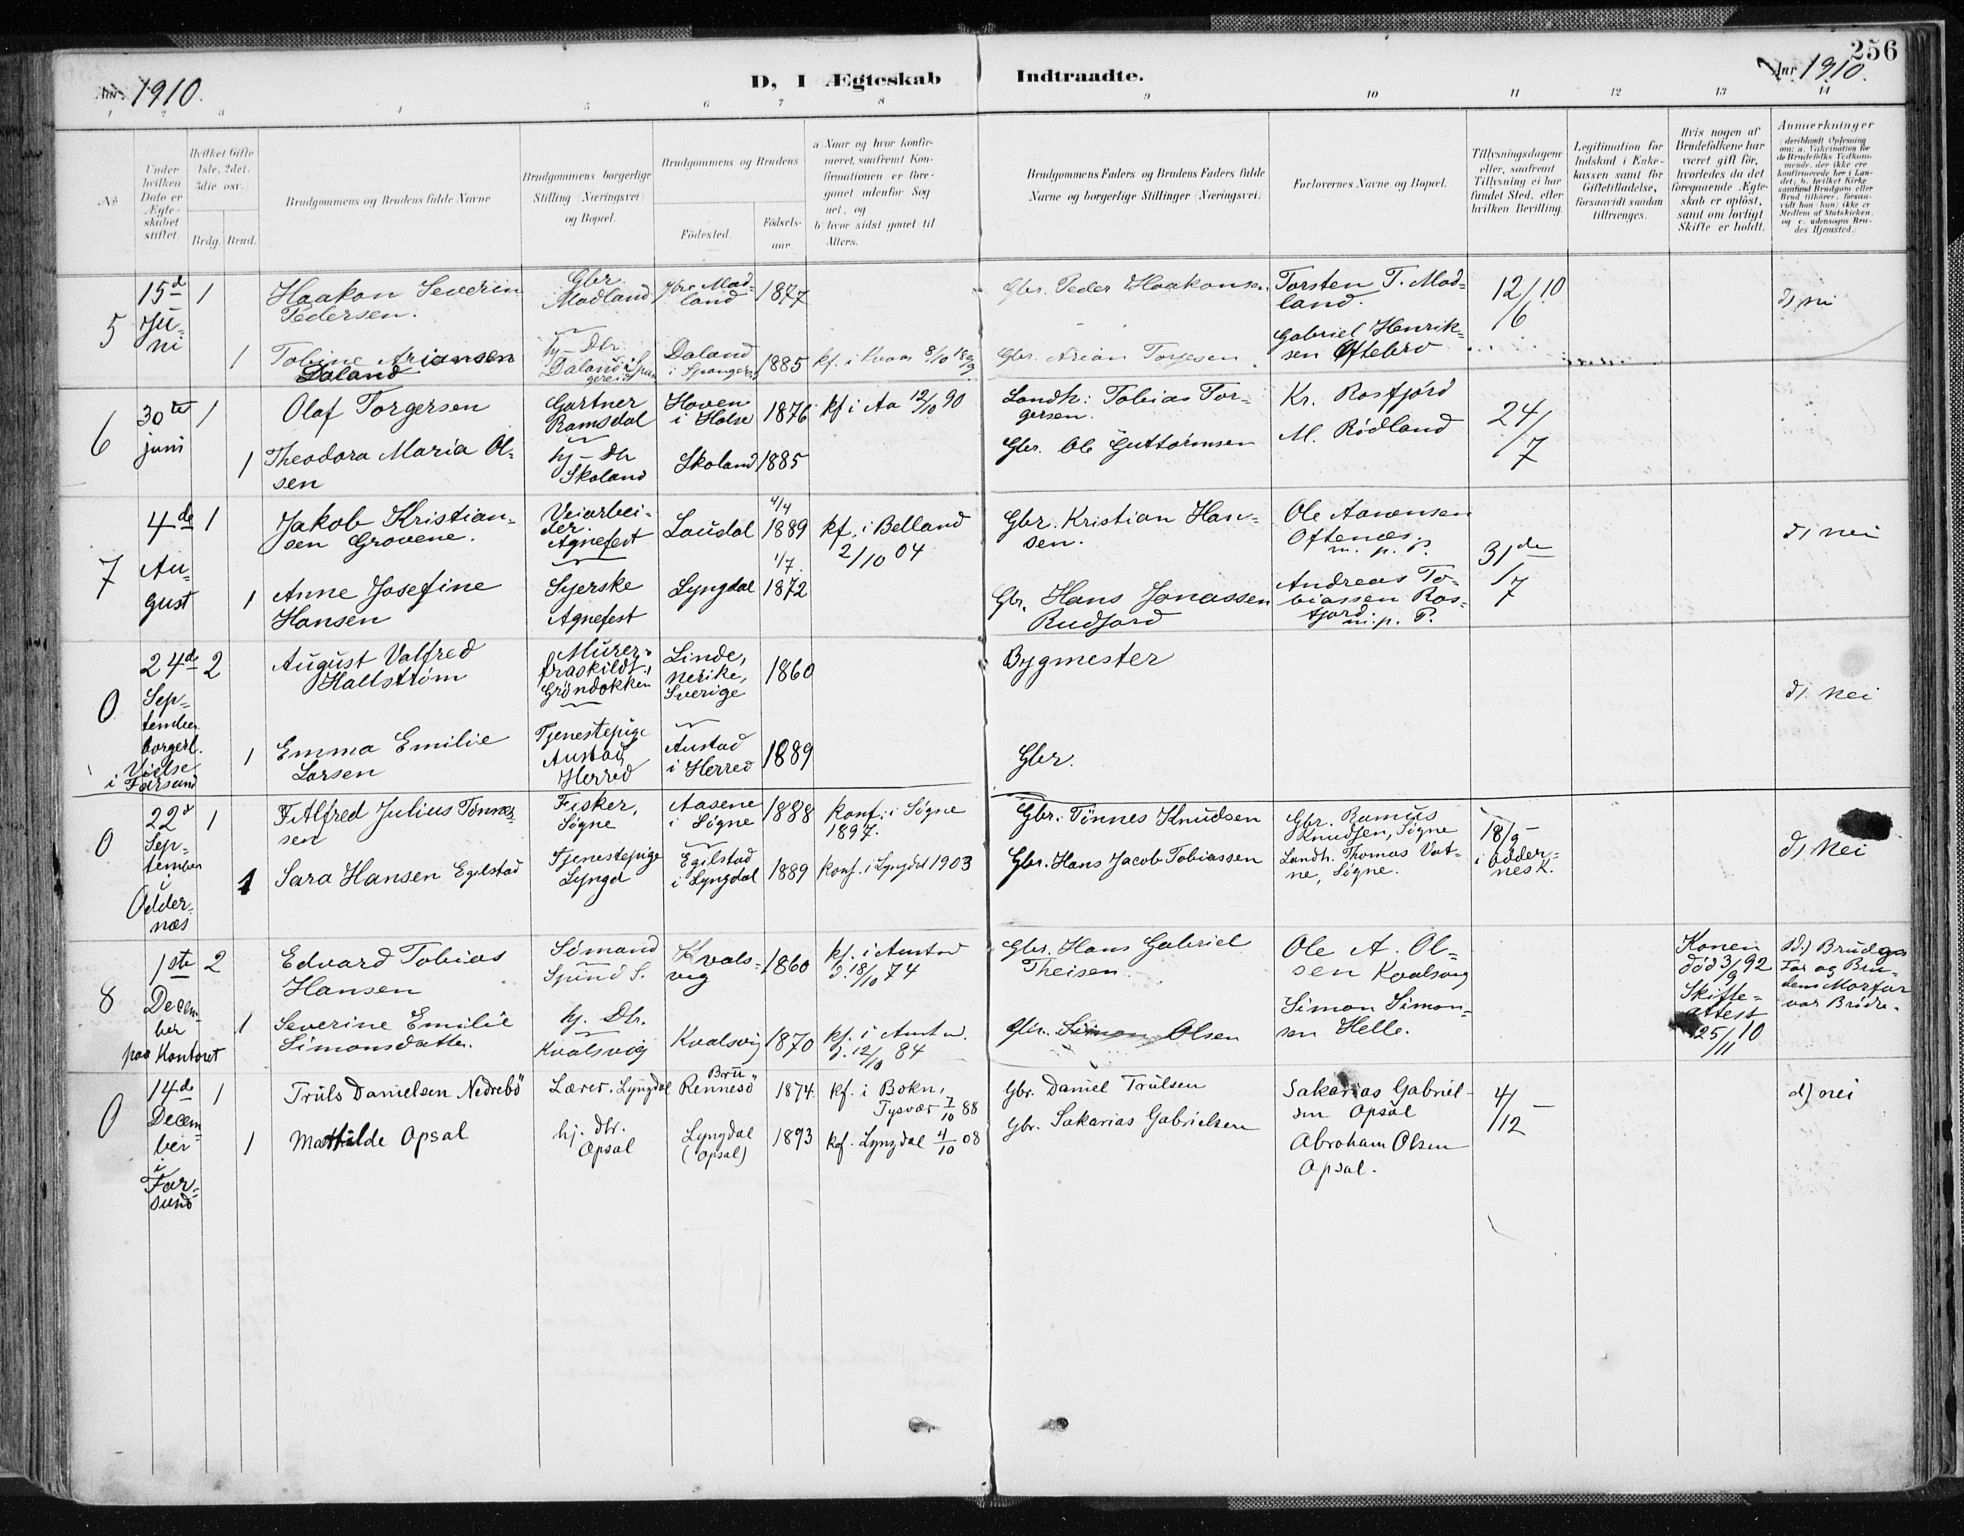 256
Aar 1910.
D, I Ægteskab Indtraadte.
Aar 1910.
1 2 3 4 5 6 7 8 9 10 11 12 13 14
№
Under hvilken Dato er Ægteskabet stiftet.
Hvilket Gifte 1ste. 2det. 3die osv.
Brdg. Brud.
Brudgommens og Brudens fulde Navne
Brudgommens borgerlige Stilling (Næringsvei) og Bopæl.
Brudgommens og Brudens
Fødested.
Fødselsaar.
a Naar og hvor konfirmeret, saafremt Konfirmationen er foregaaet udenfor Sognet, og
b hvor sidst gaaet til Alters.
Brudgommens Faders og Brudens Faders fulde Navne og borgerlige Stillinger (Næringsvei).
Forlovernes Navne og Bopæl.
Tillysningsdagene eller, saafremt Tillysning ei har fundet Sted, efter hvilken Bevilling.
Legitimation for Indskud i Enkekassen samt for Giftetilladelse, forsaavidt saadan tiltrænges.
Hvis nogen af Brudefolkene har været gift før, hvorledes da det foregaaende Ægteskab er opløst, samt om lovligt Skifte er holdt.
Anmærkninger
5
15d Juni
1
Haakon Severin Pedersen.
Gbr Madland
Madland
1877
Gbr. Peder Haakons.
Torsten T. Madland.
12/6 10
d) nei
1
Tobine Ariansen Daland
hj-Dtr Daland i Spangereid
Daland i Spangerei
1885
kf. i Kvaas 8/10 1899.
Gbr. Arian Torjesen
Gabriel Henriksen Oftebro
6
30te juni
1
Olaf Torgersen
Gartner Ramsdal
Hoven i Halse
1876
kf i Aa 12/10 90
Landh: Tobias Torgersen.
Kr. Rosfjord
24/7
1
Theodora Maria Olsen
hj-Dtr Skoland
Skoland
1885
Gbr. Ole Guttormsen
M. Rødland
7
4de August
1
Jakob Kristiansen Grovene.
Veiarbeider. Agnefest
Laudal
4/4 1889
kf. i Belland 2/10 04
Gbr. Kristian Hansen.
Ole Aanensen Oftenæs. m. p. p.
31de/7
d) nei
1
Anne Josefine Hansen
Syerske Agnefest
Lyngdal
1/7. 1872
Gbr. Hans Jonassen Rudjord
Andreas Tobiassen Rosfjord. m. p. P.
0
24de September borgerl. Vielse i Farsund
2
August Valfred Hallstrøm
Murer, fraskildt, Grøndokken
Linde, Nerike, Sverige
1860
Bygmester
d) nei
1
Emma Emilie Larsen
Tjenestepige Austad Herred
Austad i Herred
1889
Gbr.
0
22d September Oddernæs
1
Alfred Julius Tønnessen
Fisker, Søgne
Aasene i Søgne
1888
Konf. i Søgne 1897.
Gbr. Tønnes Knudsen
Gbr. Rasmus Knudsen, Søgne
18/9 i Oddernes K.
d) Nei
1
Sara Hansen Egilstad
Tjenestepige Lyngd
Egilstad i Lyngdal
1889
Konf. i Lyngdal 1903
Gbr. Hans Jacob Tobiassen
Landh. Thomas Vatne, Søgne.
8
1ste December paa Kontoret
2
Edvard Tobias Hansen
Sømand Spind S.
Kvalsvig
1860
kf. i Austad 18/10 74
Gbr. Hans Gabriel Theisen.
Ole A. Olsen Kvalsvig
Konen død 3/9 92 Skifteattest 25/11 10
d.) Brudg Far og Brudens Morfar var Brødre.
1
Severine Emilie Simonsdatter.
hj. Dtr. Kvalsvig
Kvalsvig
1870
kf. i Austad. 12/10 84
Gbr. Simon Olsen
Simon Simonsen Helle.
0
14de December i Farsund
1
Truls Danielsen Nedrebö
Lærer. Lyngdal
Rennesö
1874
kf. i Bokn, Tysvær 7/10 88
Gbr. Daniel Trulsen
Sakarias Gabrielsen Opsal
4/12
d) nei
1
Mathilde Opsal
hj. dtr. Opsal
Lyngdal (Opsal)
1893
kf. Lyngdal 4/10 08
Gbr. Sakarias Gabrielsen
Abraham Olsen Opsal.